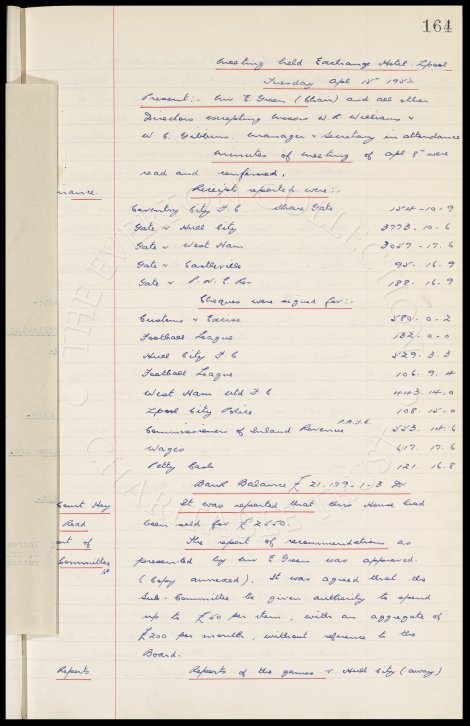 164
Meeting held Exchange Hotel. Lpool
Tuesday Apl 15th 1952.
Present:- Mr E. Green (Chair) and all other
Directors excepting Messrs W. R. Williams &
W. C. Gibbins. Manager & Secretary in attendance
Minutes of meeting of Apl 8th were
read and confirmed.
Finance. Receipts reported were:-
Coventry City F.C. Share Gate 154-10-9
Gate v Hull City 3773.10.6
Gate v West Ham 3057-17.6
Gate v 95. 16.9
Gate v P.N.E. Res 188. 16.9
Cheques were signed for:-
Customs & Excise 580.0.2
Football League 132.0-0
Hull City F.C 529.3.3
Football League 106.9.4
West Ham Utd F.C 443.14.0
Lpool City Police 108.15.0
Commissioners of Inland Revenue P.A.Y.E. 553.14.6
Wages 617.17.6
Petty Cash 121.16.8
Bank Balance £21.179-1-3 Dr
Court Hey It was reported that this House had
Road been sold for £2550.
The report of recommendations as
Committee presented by Mr E. Green was approved.
(Copy annexed). It was agreed that the
Sub-Committee be given authority to spend
up to £50 per item, with an aggregate of
£200 per month, without reference to the
Board.
Reports Reports of the games v Hull City (away)
THE EVERTON COLLECTION
CHARITABLE TRUST